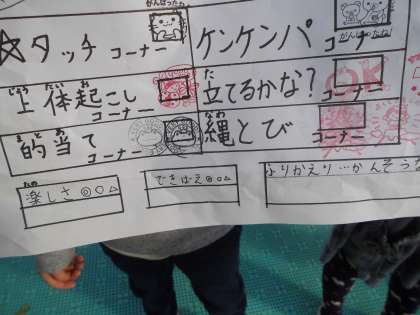 ☆タッチ コーナー
がんばったね
ケンケンパ コーナー
がんばったね!
じょう たい お
上体起こし コーナー
た
立てるかな? コーナー
OK
まと あ
的当て コーナー
なわ
縄とび コーナー
たの
楽しさ◎○△
できばえ◎○△
ふりかえり…かんそうな